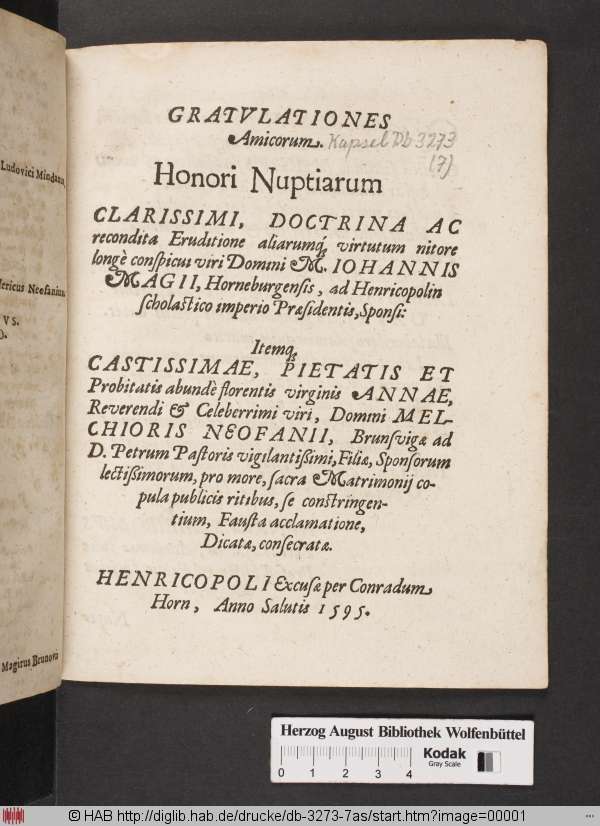 Ludovici Mindanus
ericus Neofanius
VS.
Magirus Brunovi
GRATVLATIONES
Amicorum. Kapsel Db 3273
(7)
Honori Nuptiarum
CLARISSIMI, DOCTRINA AC
recondita Eruditione aliarumq́; virtutum nitore
longè conſpicui viri Domini M. IOHANNIS
MAGII, Horneburgenſis, ad Henricopolin
ſcholaſtico imperio Præſidentis, Sponſi:
Itemq́;
CASTISSIMAE, PIETATIS ET
Probitatis abundè florentis virginis ANNAE,
Reverendi & Celeberrimi viri, Domini MEL-
CHIORIS NEOFANII, Brunſvigæ ad
D. Petrum Paſtoris vigilantißimi, Filiæ, Sponſorum
lectißimorum, pro more, ſacra Matrimonij co-
pula publicis ritibus, ſe conſtringen-
tium, Fauſta acclamatione,
Dicatæ, conſecratæ.
HENRICOPOLI Excuſæ per Conradum
Horn, Anno Salutis 1595.
Herzog August Bibliothek Wolfenbüttel
Kodak
Gray Scale
0 1 2 3 4
© HAB http://diglib.hab.de/drucke/db-3273-7as/start.htm?image=00001